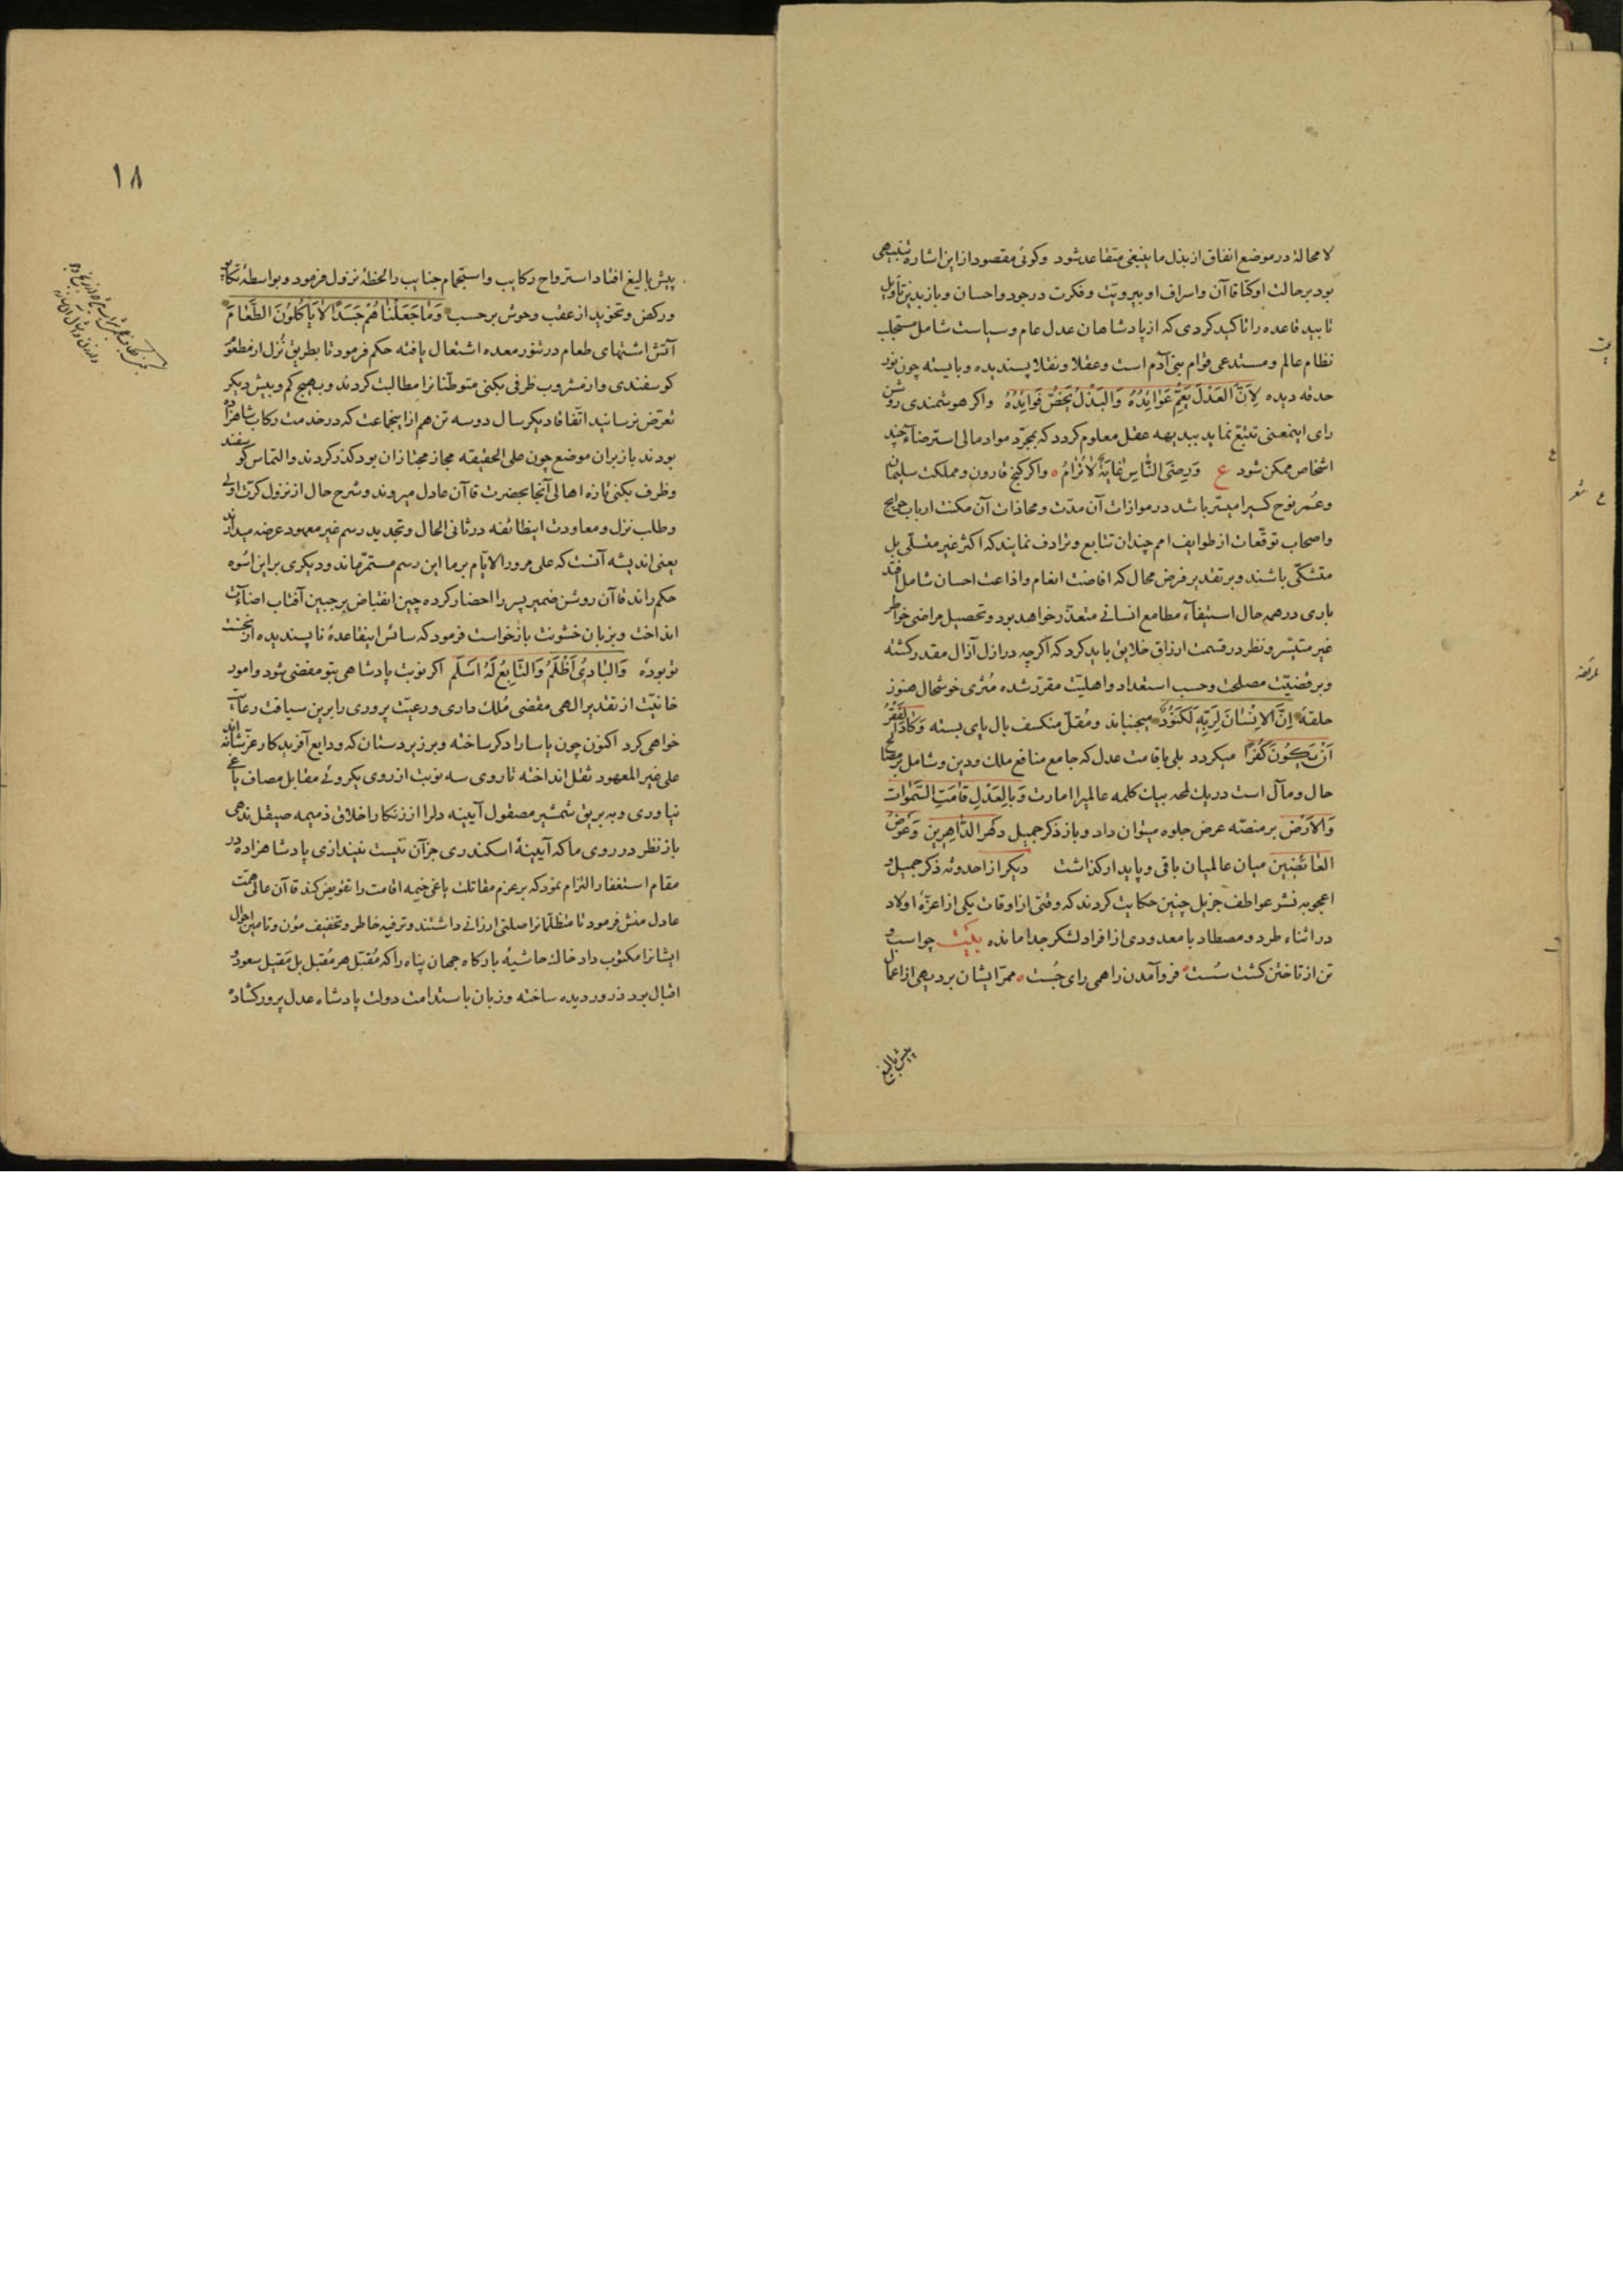 لا محالة در موضع انفاق از بذل ما ینبغی متقاعد شود و کوئی مقصود از این اشاره تنبیهی
بود بر حالت اوکتا قاآن و اسراف او بی رویت و فکرت در جود و احسان و باز بدین تاویل
تایید قاعده را تاکید کردی که از پادشاهان عدل عام و سیاست شامل مستجلب
نظام عالم و مستدعی قوام بنی آدم است و عقلا و نقلا پسندیده و بایسته چون نور
حدقه دیده لِاَنَّ العَدْلَ یَعُمُّ عَوَائِدُهُ وَالبَذْلُ یَخُصُّ فَوَایِدُهُ واکر هوشمندی روشن
رای اینمعنی تتبع نماید ببدیهه عقل معلوم کردد که بمجرّد مواد مالی استرضاء چند
اشخاص ممکن شود ع وَرِضَی النَّاسِ غَایَةٌ لَا تُرَامُ واکر کنج قارون و مملکت سلیمان
و عُمر نوح کسیرا میسّر باشد در موازات آن مدّت و محاذات آن مکنت ارباب حوایج
و اصحاب توقّعات از طوایف امم چندان تتابع و ترادف نمایند که اکثر غیر متسلّی بل
متشکّی باشند و بر تقدیر فرض محال که افاضت انعام و اذاعت احسان شامل افتد
باری در همه حال استیفاء مطامع انسانی متعذّر خواهد بود و تحصیل مراضی خواطر
غیر متیسّر و نظر در قسمت ارزاق خلایق باید کرد که اکرچه در ازل آزال مقدر کشته
و بر قضیّت مصلحت و حسب استعداد و اهلیّت مقرّر شده مُثری خوشحال هنوز
حلقهٔ اِنَّ الاِنْسَانَ لِرَبِّهِ لَکَنُودٌ میجنباند و مُقلّ منکسف بال پای بسته وَکَادَ الفَقْرُ
اَنْ یَکُونَ کُفْرًا میکردد بلی باقامت عدل که جامع منافع ملک و دین و شامل مصالح
حال و مآل است در یک لمحه بیک کلمه عالمیرا امارت وَبِالعَدْلِ قَامَتِ السَّمٰوَات
وَالاَرْض بر منصّه عرض جلوه میتوان داد و باز ذکر جمیل دَهْرَ الدَّاهِرِین وَعَوْضَ
العَائِضِین میان عالمیان باقی و پایدار کذاشت دیکر از احدوثه ذکر جمیل و
اعجوبه نشر عواطف جزیل چنین حکایت کردند که وقتی از اوقات یکی از اعزّهٔ اولاد
در اثناء طرد و مصطاد با معدودی از افراد لشکر جدا مانده بَیْت چو اسب و
تن از تاختن کشت سُست فرو آمدن را همی رای جُست ممرّ ایشان بر دیهی از اعمال
پیش بالیغ
۱۸
پیش بالیغ افتاد استرواح رکایب و استجمام جنایب را لحظهٔ نزول فرمود و بواسطهٔ تکاپو
و رکض و تخوید از عقب وحوش بر حسب وَمَا جَعَلْنَاهُمْ جَسَدًا لَا یَاْکُلُونَ الطَّعَامَ
آتش اشتهای طعام در تنور معده اشتعال یافته حکم فرمود تا بطریق نُزل از مطعوم
کوسفندی و از مشروب ظرفی بکنی متوطّنانرا مطالبت کردند و بهیچ کم و بیش دیکر
تعرّض نرسانید اتّفاقا دیکر سال دو سه تن هم از اینجماعت که در خدمت رکاب شاهزاده
بودند باز بران موضع چون علی الحقیقه مجاز مجتازان بود کذر کردند و التماس کوسفند
و ظرف بکنی تازه اهالی آنجا بحضرت قاآن عادل میروند و شرح حال از نزول کرّت اولی
و طلب نزل و معاودت اینطائفه در ثانی الحال و تجدید رسم غیر معهود عرضه میدارند
یعنی اندیشه آنست که علی مرور الایّام بر ما این رسم مستمرّ ماند و دیکری بر این اسوه
حکم راند قاآن روشن ضمیر پسر را احضار کرده چین انقباض بر جبین آفتاب اضاءت
انداخت و بزبان خشونت بازخواست فرمود که سائس اینقاعدهٔ ناپسندیده از نخست
تو بودهٔ وَالبَادِیُ اَظْلَمُ وَالتَّابِعُ لَهُ اَسْلَم اکر نوبت پادشاهی بتو مفضی شود و امور
خانیّت از تقدیر الهی مقتضی مُلک داری و رعیّت پروری را برین سیاقت رعایت
خواهی کرد اکنون چون یاسا را دکر ساخته و بر زیردستان که ودایع آفریدکار عزّ شانه اند
علی غیر المعهود ثقل انداخته تا روی سه نوبت از روی یکروئی مقابل مصاف یاغی
نیاوری و به بریق شمشیر مصقول آیینه دلرا از زنکار اخلاق ذمیمه صیقل ندهی
باز نظر در روی ما که آیینهٔ اسکندری جز آن نیست نیندازی پادشاهزاده در
مقام استغفار التزام نمود که بر عزم مقاتلت یاغی خیمه اقامت را تقویض کند قاآن عالی همّت
عادل منش فرمود تا متظلّمانرا صلتی ارزانی داشتند و ترفیه خاطر و تخفیف مؤن و تامین احوال
ایشانرا مکتوب داد خاک حاشیهٔ بارکاه جهان پناه را که مُقَبّل هر مُقبل بل مَقیل سعود و
اقبال بود ذرور دیده ساخته و زبان باستدامت دولت پادشاه عدل پرور کشاده